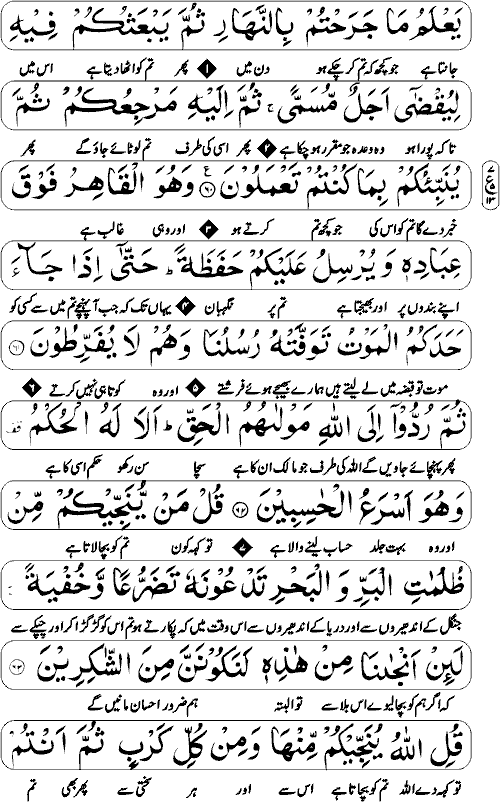 يَعْلَمُ مَا جَرَحْتُمْ بِالنَّهَارِ ثُمَّ يَبْعَثُكُمْ فِيْهِ
جانتا ہے جو کچھ کہ تم کر چکے ہو دن میں ۱ پھر تم کو اٹھا دیتا ہے اس میں
لِيُقْضٰٓى اَجَلٌ مُّسَمًّى ۚ ثُمَّ اِلَيْهِ مَرْجِعُكُمْ ثُمَّ
تاکہ پورا ہو وہ وعدہ جو مقرر ہو چکا ہے ۲ پھر اسی کی طرف تم لوٹائے جاؤ گے پھر
يُنَبِّئُكُمْ بِمَا كُنْتُمْ تَعْمَلُوْنَ ۶۰ ع وَهُوَ الْقَاهِرُ فَوْقَ
۷ ع ۱۳
خبر دے گا تم کو اس کی جو کچھ تم کرتے ہو ۳ اور وہی غالب ہے
عِبَادِهٖ وَيُرْسِلُ عَلَيْكُمْ حَفَظَةً ؕ حَتّٰٓى اِذَا جَآءَ
اپنے بندوں پر اور بھیجتا ہے تم پر نگہبان ۴ یہاں تک کہ جب آ پہنچے تم میں سے کسی کو
حَدَكُمُ الْمَوْتُ تَوَفَّتْهُ رُسُلُنَا وَهُمْ لَا يُفَرِّطُوْنَ ۶۱
موت تو قبضہ میں لے لیتے ہیں ہمارے بھیجے ہوئے فرشتے ۵ اور وہ کوتاہی نہیں کرتے ۶
ثُمَّ رُدُّوْٓا اِلَى اللّٰهِ مَوْلٰىهُمُ الْحَقِّ ؕ اَلَا لَهُ الْحُكْمُ
پھر پہنچائے جاویں گے اللہ کی طرف جو مالک ان کا ہے سچا سن رکھو حکم اسی کا ہے
وَهُوَ اَسْرَعُ الْحٰسِبِيْنَ ۶۲ قُلْ مَنْ يُّنَجِّيْكُمْ مِّنْ
اور وہ بہت جلد حساب لینے والا ہے ۷ تو کہہ کون تم کو بچا لاتا ہے
ظُلُمٰتِ الْبَرِّ وَالْبَحْرِ تَدْعُوْنَهٗ تَضَرُّعًا وَّخُفْيَةً ۚ
جنگل کے اندھیروں سے اور دریا کے اندھیروں سے اس وقت میں کہ پکارتے ہو تم اس کو گڑگڑا کر اور چپکے سے
لَىِٕنْ اَنْجٰىنَا مِنْ هٰذِهٖ لَنَكُوْنَنَّ مِنَ الشّٰكِرِيْنَ ۶۳
کہ اگر ہم کو بچا لیوے اس بلا سے تو البتہ ہم ضرور احسان مانیں گے
قُلِ اللّٰهُ يُنَجِّيْكُمْ مِّنْهَا وَمِنْ كُلِّ كَرْبٍ ثُمَّ اَنْتُمْ
تو کہہ دے اللہ تم کو بچاتا ہے اس سے اور ہر سختی سے پھر بھی تم